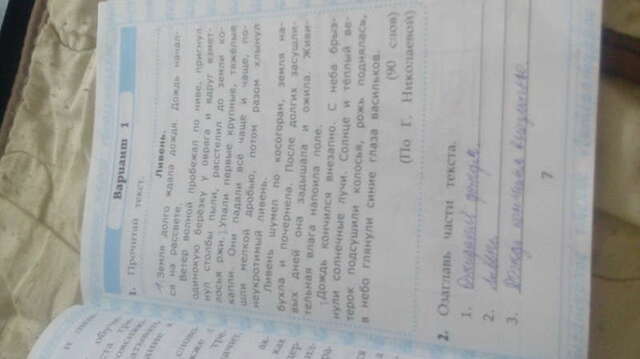 Вариант 1
1. Прочитай текст.
Ливень.
Земля долго ждала дождя. Дождь начал-
ся на рассвете.
Ветер волной пробежал по ниве, пригнул
одинокую берёзку у оврага и вдруг взмет-
нул столбы пыли, расстелил до земли ко-
лосья ржи. Упали первые крупные, тяжёлые
капли. Они падали всё чаще и чаще, по-
шли мелкой дробью, потом разом хлынул
неукротимый ливень.
Ливень шумел по косогорам, земля на-
бухла и почернела. После долгих засушли-
вых дней она задышала и ожила. Живи-
тельная влага напоила поле.
Дождь кончился внезапно. С неба брыз-
нули солнечные лучи. Солнце и тёплый ве-
терок подсушили колосья, рожь поднялась,
в небо глянули синие глаза васильков.
(90 слов)
(По Г. Николаевой)
2. Озаглавь части текста.
1. Ожидание дождя
2. Ливень
3. Дождь кончился внезапно
7